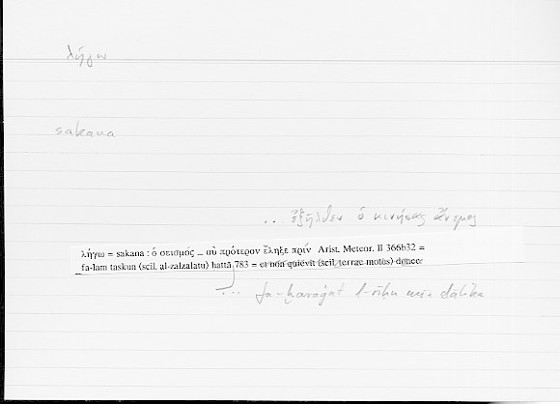 λήγω
sakana
.. ἐξῆλθεν ὁ κινήσας ἄνεμος
λήγω = sakana : ὁ σεισμός ... οὐ πρότερον ἔληξε πρίν Arist. Meteor. II 366b32 =
fa-lam taskun (scil. al-zalzalatu) ḥattā 783 = et non quievit (scil. terrae motus) donec
... ḫaraǧat l-rīḥu min dālika